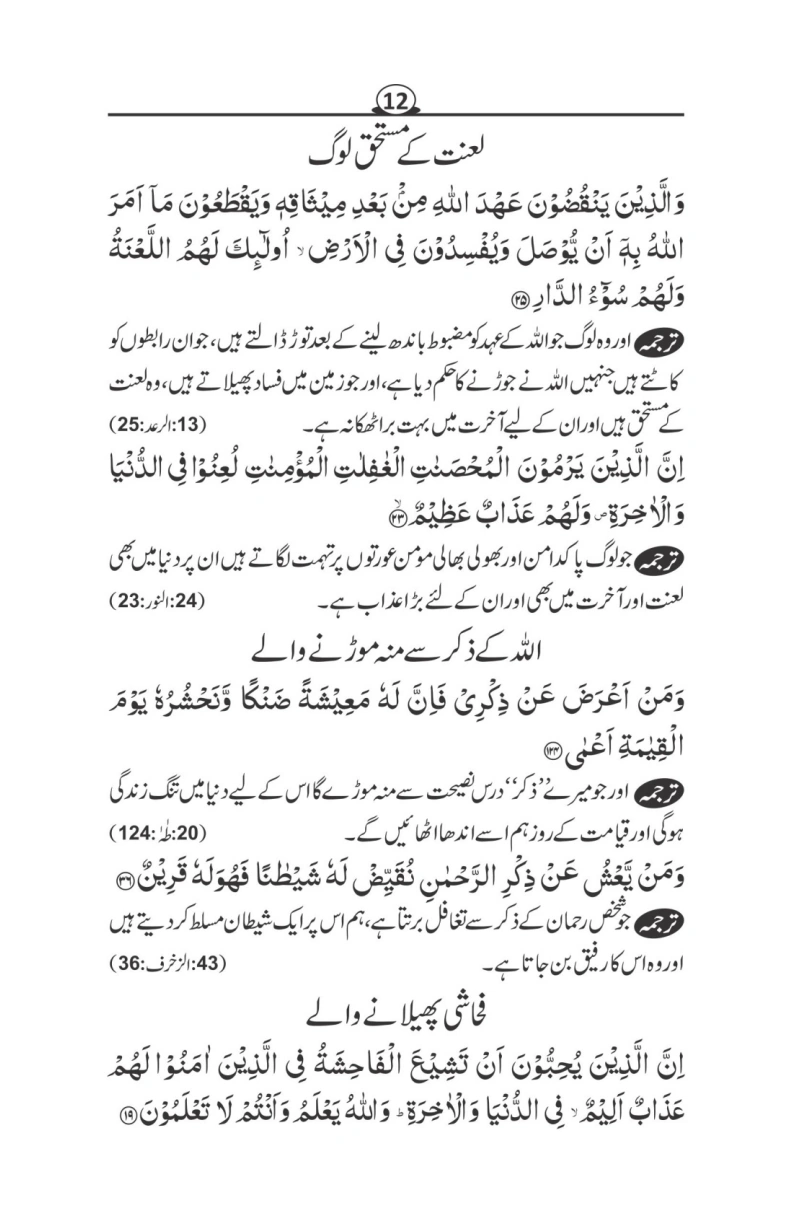 12
لعنت کے مستحق لوگ
وَالَّذِیْنَ یَنْقُضُوْنَ عَهْدَ اللهِ مِنْۢ بَعْدِ مِیْثَاقِهٖ وَیَقْطَعُوْنَ مَاۤ اَمَرَ
اللهُ بِهٖۤ اَنْ یُّوْصَلَ وَیُفْسِدُوْنَ فِی الْاَرْضِ ۙ اُولٰٓىِٕكَ لَهُمُ اللَّعْنَةُ
وَلَهُمْ سُوْٓءُ الدَّارِ ﴿۲۵﴾
ترجمہ اور وہ لوگ جو اللہ کے عہد کو مضبوط باندھ لینے کے بعد توڑ ڈالتے ہیں، جو ان رابطوں کو
کاٹتے ہیں جنہیں اللہ نے جوڑنے کا حکم دیا ہے، اور جو زمین میں فساد پھیلاتے ہیں، وہ لعنت
کے مستحق ہیں اور ان کے لیے آخرت میں بہت برا ٹھکانہ ہے۔ (13:الرعد:25)
اِنَّ الَّذِیْنَ یَرْمُوْنَ الْمُحْصَنٰتِ الْغٰفِلٰتِ الْمُؤْمِنٰتِ لُعِنُوْا فِی الدُّنْیَا
وَالْاٰخِرَةِ ۪ وَلَهُمْ عَذَابٌ عَظِیْمٌ ﴿ۙ۲۳﴾
ترجمہ جو لوگ پاکدامن اور بھولی بھالی مومن عورتوں پر تہمت لگاتے ہیں ان پر دنیا میں بھی
لعنت اور آخرت میں بھی اور ان کے لئے بڑا عذاب ہے۔ (24:النور:23)
اللہ کے ذکر سے منہ موڑنے والے
وَمَنْ اَعْرَضَ عَنْ ذِكْرِیْ فَاِنَّ لَهٗ مَعِیْشَةً ضَنْكًا وَّنَحْشُرُهٗ یَوْمَ
الْقِیٰمَةِ اَعْمٰی ﴿۱۲۴﴾
ترجمہ اور جو میرے ’’ذکر‘‘ درس نصیحت سے منہ موڑے گا اس کے لیے دنیا میں تنگ زندگی
ہوگی اور قیامت کے روز ہم اسے اندھا اٹھائیں گے۔ (20:طٰہٰ:124)
وَمَنْ یَّعْشُ عَنْ ذِكْرِ الرَّحْمٰنِ نُقَیِّضْ لَهٗ شَیْطٰنًا فَهُوَلَهٗ قَرِیْنٌ ﴿۳۶﴾
ترجمہ جو شخص رحمان کے ذکر سے تغافل برتتا ہے، ہم اس پر ایک شیطان مسلط کر دیتے ہیں
اور وہ اس کا رفیق بن جاتا ہے۔ (43:الزخرف:36)
فحاشی پھیلانے والے
اِنَّ الَّذِیْنَ یُحِبُّوْنَ اَنْ تَشِیْعَ الْفَاحِشَةُ فِی الَّذِیْنَ اٰمَنُوْا لَهُمْ
عَذَابٌ اَلِیْمٌ ۙ فِی الدُّنْیَا وَالْاٰخِرَةِ ؕ وَاللهُ یَعْلَمُ وَاَنْتُمْ لَا تَعْلَمُوْنَ ﴿۱۹﴾